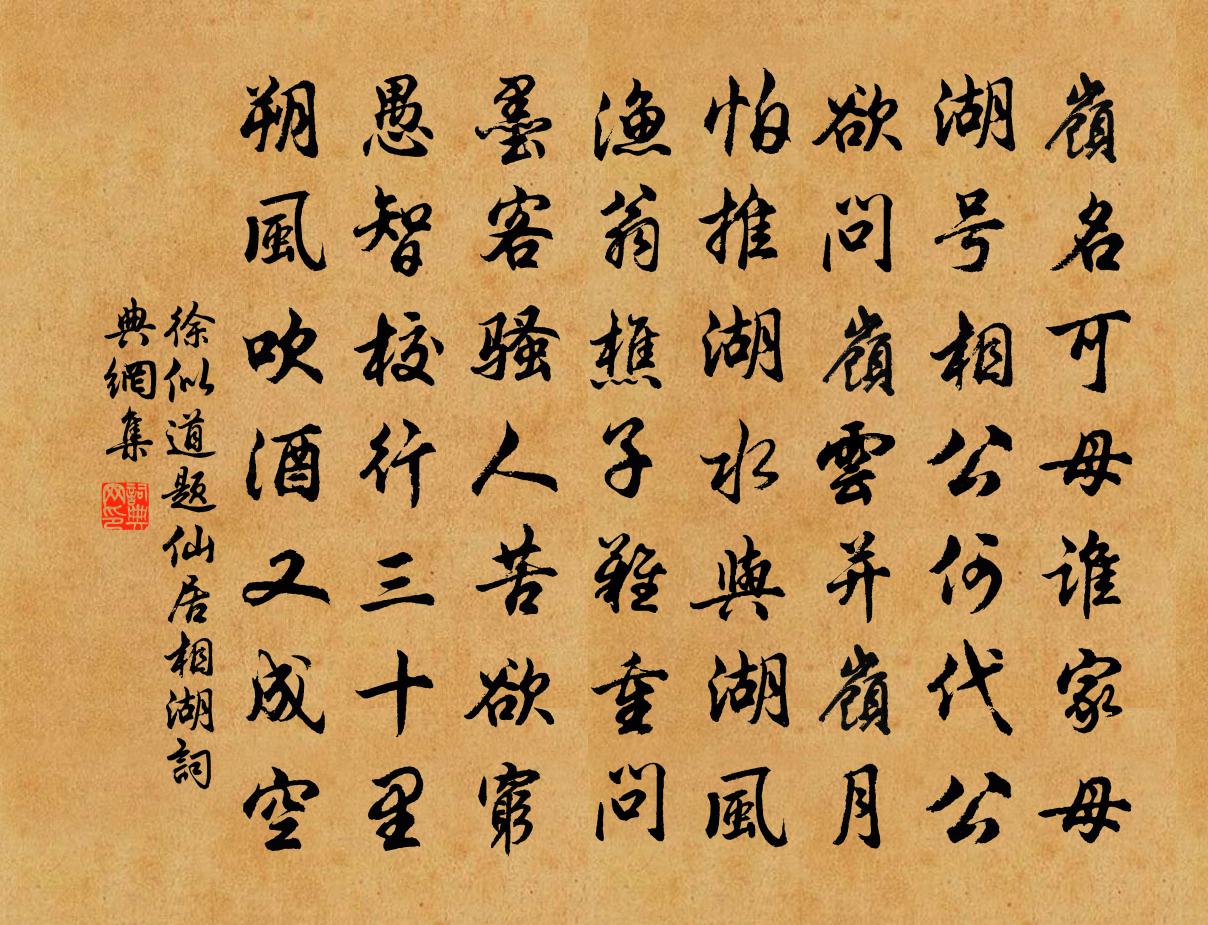 嶺名可母谁家母
湖号相公何代公
欲问嶺雲并嶺月
怕推湖水與湖風
漁翁樵子難重问
墨客骚人苦欲窮
愚智校行三十里
朔風吹酒又成空
徐似道题仙居相湖詞
典網集
詞典
网印